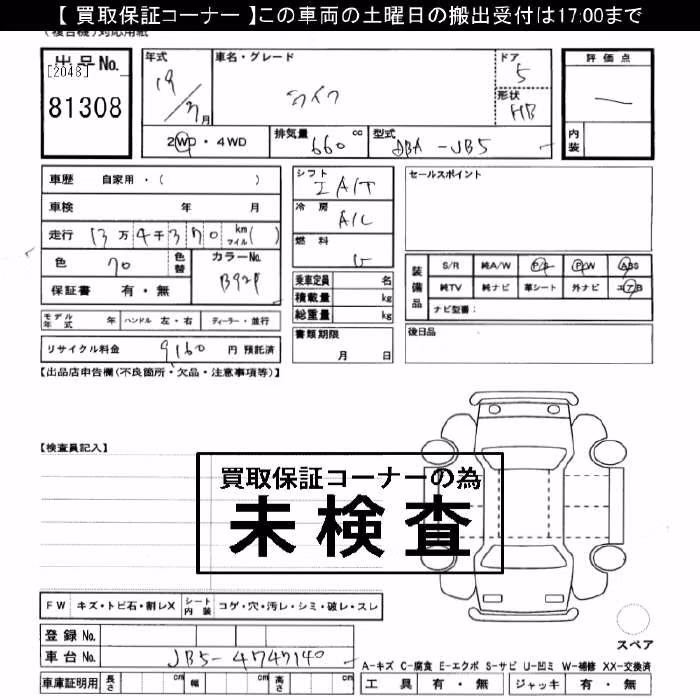 【 買取保証コーナー 】この車両の土曜日の搬出受付は17:00まで
(複合機)対応用紙
出品No.
[2048]
81308
年式
19/7月
車名・グレード
ライフ
ドア
5
形状
HB
評価点
内装
2WD・4WD
排気量
660 cc
型式
DBA-JB5
車歴 自家用・( )
車検 年 月
走行 13万4千370 km マイル( )
色 クロ
色替
カラーNo.
B92P
保証書 有・無
シフト
IA/T
冷房
A/C
燃料
G
セールスポイント
装備品
S/R 純A/W P/S P/W ABS
純TV 純ナビ 革シート 外ナビ エアB
ナビ型番:
乗車定員 名
積載量 kg
総重量 kg
モデル年式 年 ハンドル 左・右 ディーラー・並行
書類期限
月 日
後日品
リサイクル料金 9160 円 預託済
【出品店申告欄(不良箇所・欠品・注意事項等)】
【検査員記入】
買取保証コーナーの為
未検査
FW キズ・トビ石・割レX シート内装 コゲ・穴・汚レ・シミ・破レ・スレ
スペア
登録No.
車台No.
A-キズ C-腐食 E-エクボ S-サビ U-凹ミ W-補修 XX-交換済
車庫証明用 長さ cm 幅 cm 高さ cm
工具 有・無 ジャッキ 有・無